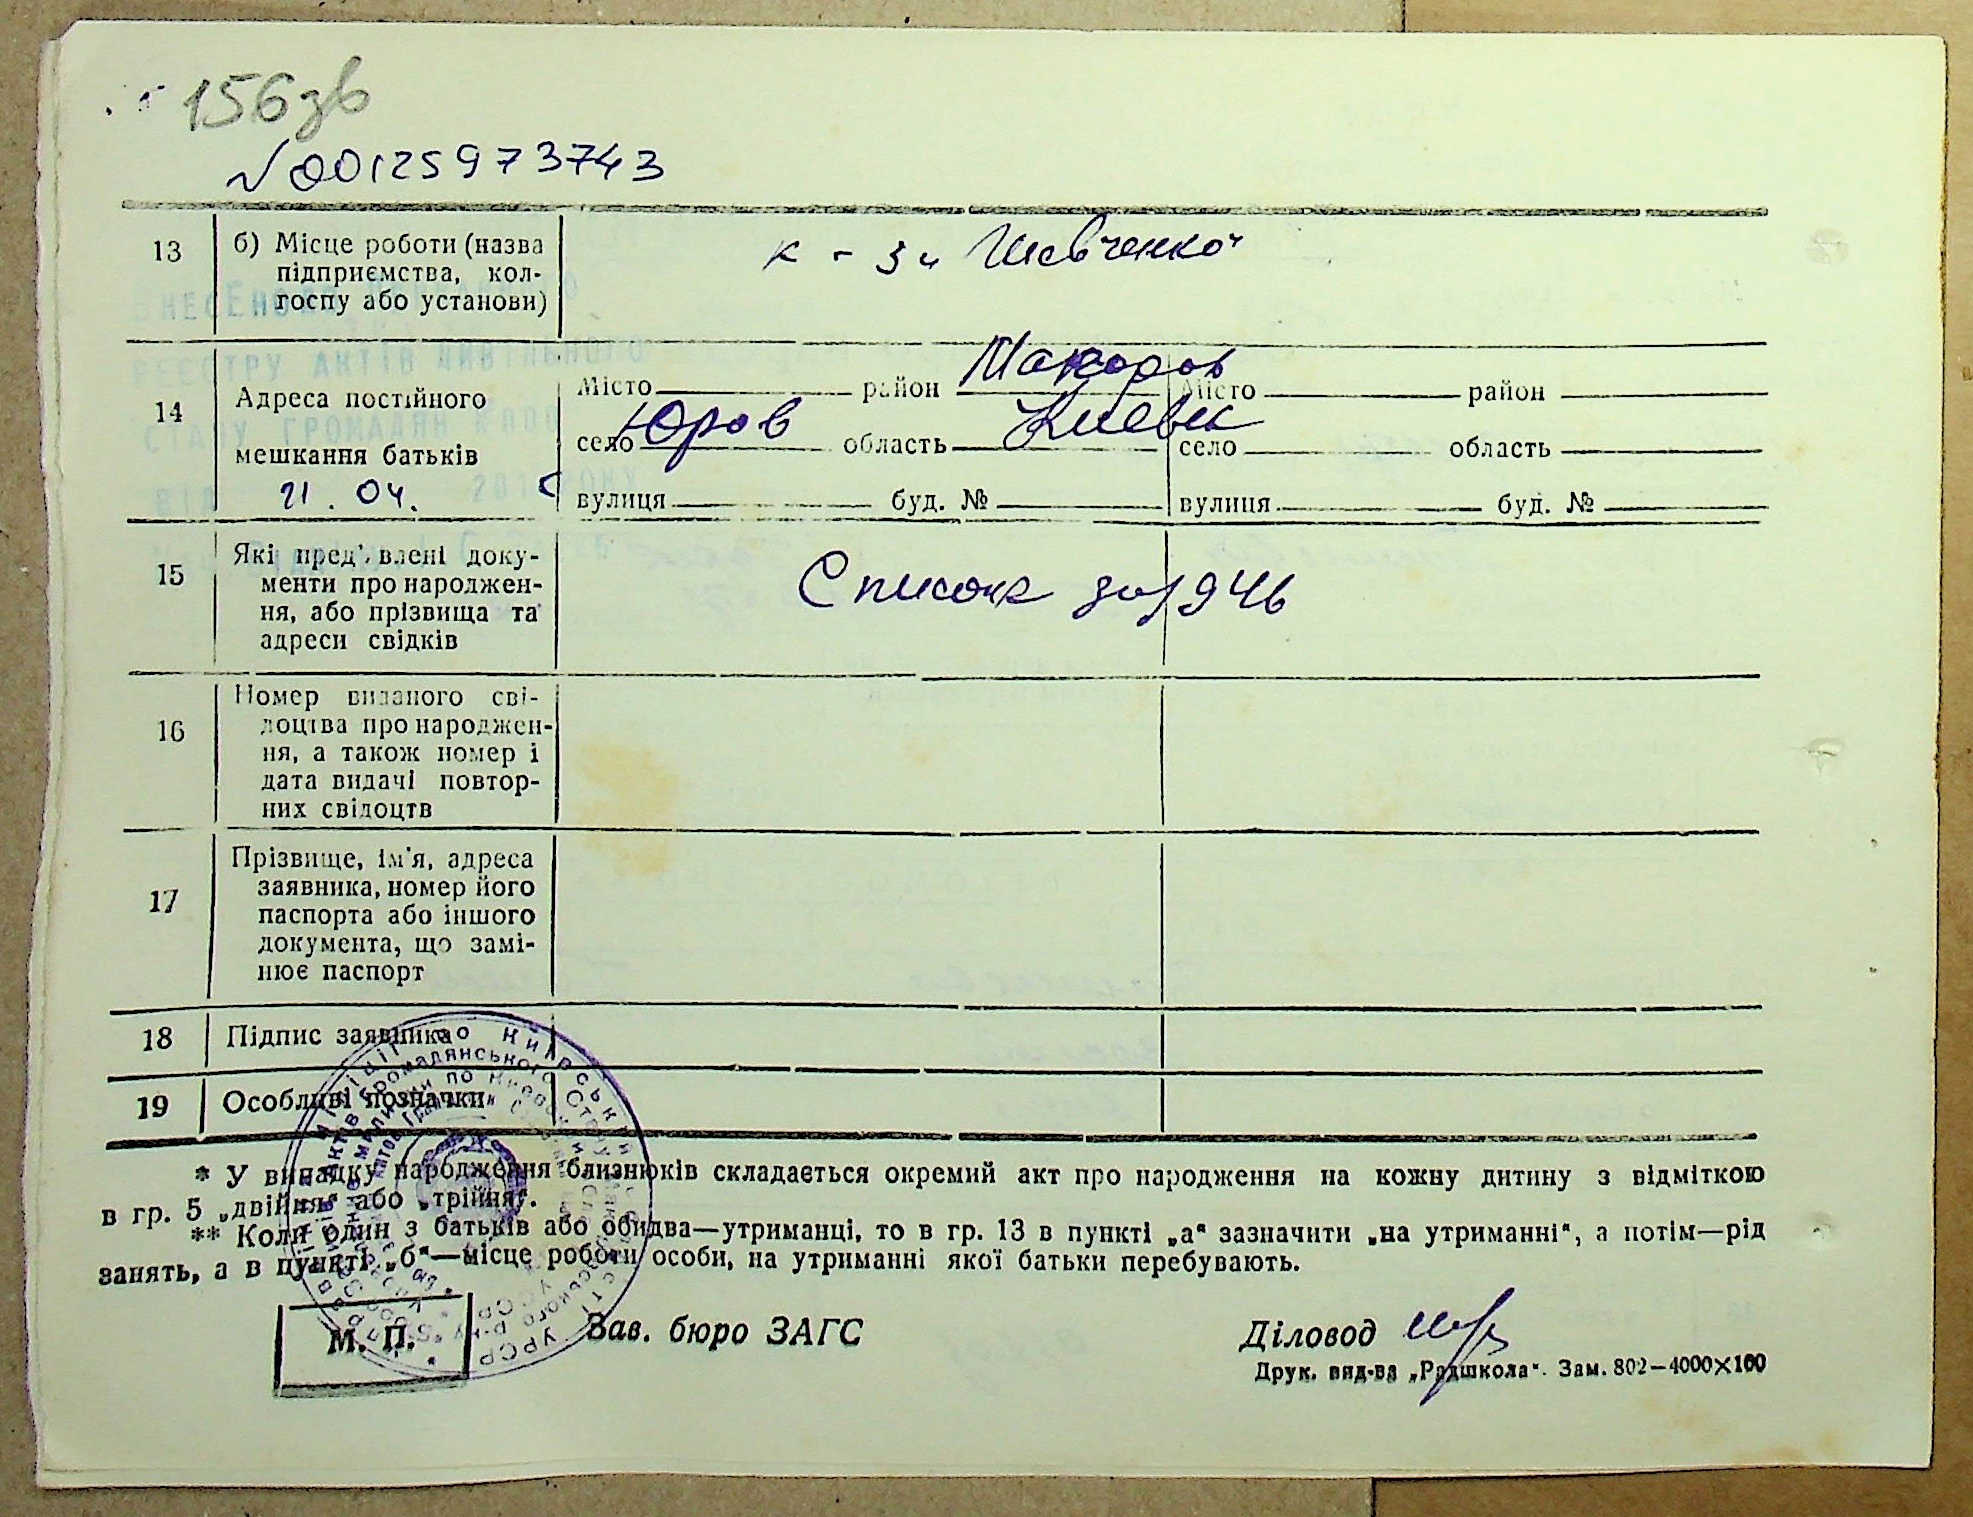 156зв
N 00125973743
13
б) Місце роботи (назва
підприємства, кол-
госпу або установи)
к - з и Шевченко
14
Адреса постійного
мешкання батьків
21. 04.
Місто район Макаров
село Юров область Киевск
вулиця буд. №
Місто район
село область
вулиця буд. №
РЕЄСТРУ АКТІВ ЦИВІЛЬНОГО
СТАНУ ГРОМАДЯН
15
Які пред'влені доку-
менти про народжен-
ня, або прізвища та
адреси свідків
Список за 1946
16
Номер виданого сві-
доцтва про народжен-
ня, а також номер і
дата видачі повтор-
них свідоцтв
17
Прізвище, ім'я, адреса
заявника, номер його
паспорта або іншого
документа, що замі-
нює паспорт
18
Підпис заявника
19
Особливі позначки
* У випадку народження близнюків складається окремий акт про народження на кожну дитину з відміткою
в гр. 5 „двійня" або „трійня".
** Коли один з батьків або обидва—утриманці, то в гр. 13 в пункті „а" зазначити „на утриманні", а потім—рід
занять, а в пункті „б"—місце роботи особи, на утриманні якої батьки перебувають.
М. П.
Зав. бюро ЗАГС
Діловод
Друк. вид-ва „Радшкола". Зам. 802—4000×100